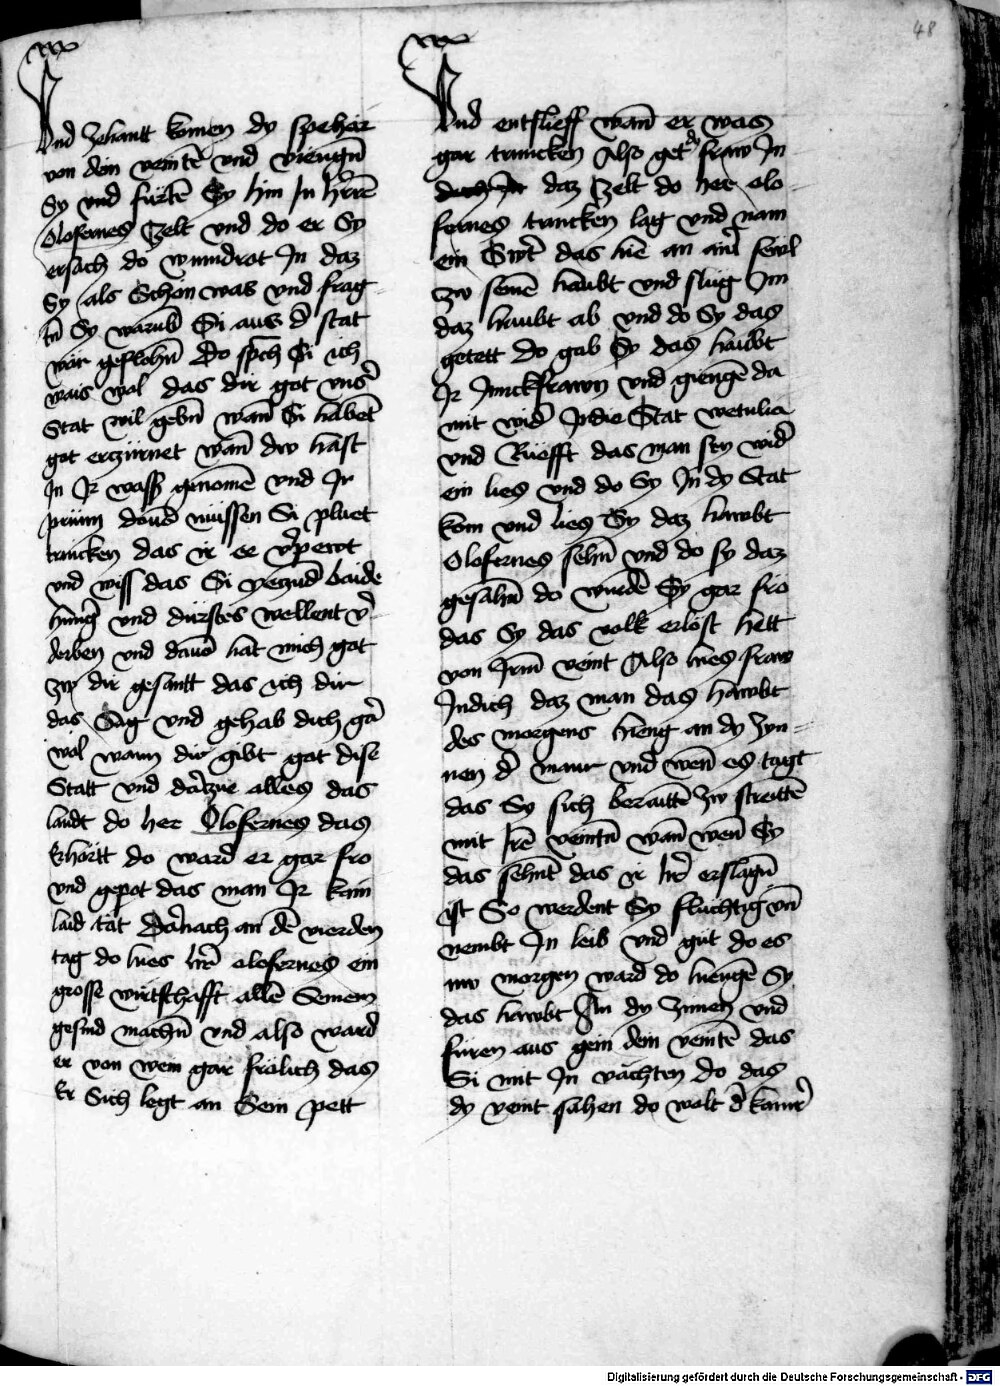 48
Und zehantt komen dy spehär
von dem veintē und viengn̄
Sy und fürtē Sy hin In hērrē
Olofernes Zelt und do er Sy
ersach do wundrot In daz
Sy als Schön was und frag
tn̄ Sy warub̄ Si aus d' stat
wär geflohn̄ Do sp̄ch Si ich
wais wol das dir got uns'
Stat wil gebn̄ wan̄ Si habet̄
got erczürnet wan̄ dw hast
In Ir wass' genomē und Ir
prünn dauō müssen Si pluet
trincken das ir ee v'pewt
und wiss das Si yeczūd baide
hung' und dürstes wellent v'
derben und dauō hat mich got
zw dir gesantt das ich dir
das Sag und gehab dich gā
wol wann dir gibt got dise
Statt und dārzue alles das
landt do her Olofernes das
Erhörtt do ward er gar fro
und gepot das man Ir kain
laid tät Dānach an dē vierden
tag do hies hrē olofernes ein
grosse wirtschafft allē Seinem
gesind machn̄ und also ward
er von wein gar frölich das
Er Sich legt an Sein pett
Und entslieff wan̄ er was
gar truncken Also get dy fraw In
daz Zelt do her olo
fernes truncken lag und nam
ein Swt̄ das hie an ain' sewl
zw seinē haubt und slug Im
daz haubt ab und do Sy das
getett do gab Sy das haubt
Ir Junckfrawn und giengē da
mit wid' In die Stat wetulia
und Rüefft das man sey wid'
ein lies und do Sy In dy Stat
kom und lies Sy daz hawbt
Olofernes sehn̄ und do sy daz
gesahn̄ do wurdē Sy gar fro
das Sy das volk erlöst hett
von Irn̄ veint Also hies fraw
Judich daz man das hawbt
des morgens hieng an dy Zyn
nen d' maur und wen̄ es tagt
das Sy sich beraittē zw streittē
mit Irē veintn̄ wan̄ wen̄ Sy
das sehnt das ir hr̄ erslagn̄
ist So werdent Sy fluchtig un̄
nembt In leib und gut do es
nw morgen ward do hiengē Sy
das hawbt An dy Zinnen und
füren aus gein dem veintē das
Si mit In vächten do das
dy veint sahen do wolt d' kamr'
Digitalisierung gefördert durch die Deutsche Forschungsgemeinschaft - DFG